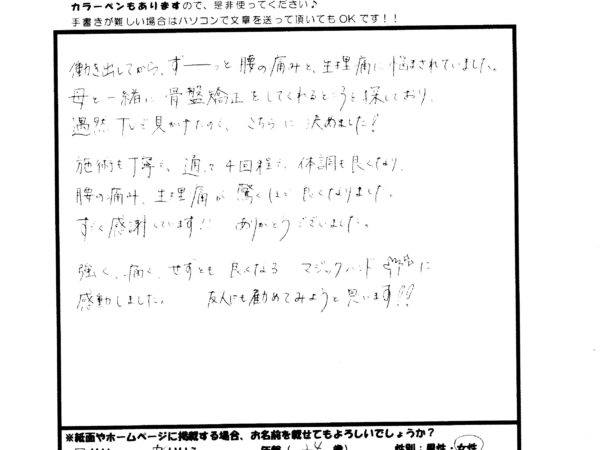 カラーペンもありますので、是非使ってください♪
手書きが難しい場合はパソコンで文章を送って頂いてもOKです！！
働き出してから、ずーーっと 腰の痛みと、生理痛に悩まされていました。
母と一緒に 骨盤矯正をしてくれるところを探しており、
偶然 TVで見かけたので、こちらに 決めました！
施術も丁寧で、通って 4回程で 体調も良くなり、
腰の痛み、生理痛が 驚くほど 良くなりました。
すごく感謝しています!! ありがとうございました。
強く、痛く、せずとも 良くなる マジックハンド に
感動しました。 友人にも勧めてみようと思います!!
※紙面やホームページに掲載する場合、お名前を載せてもよろしいでしょうか？
性別：男性・女性